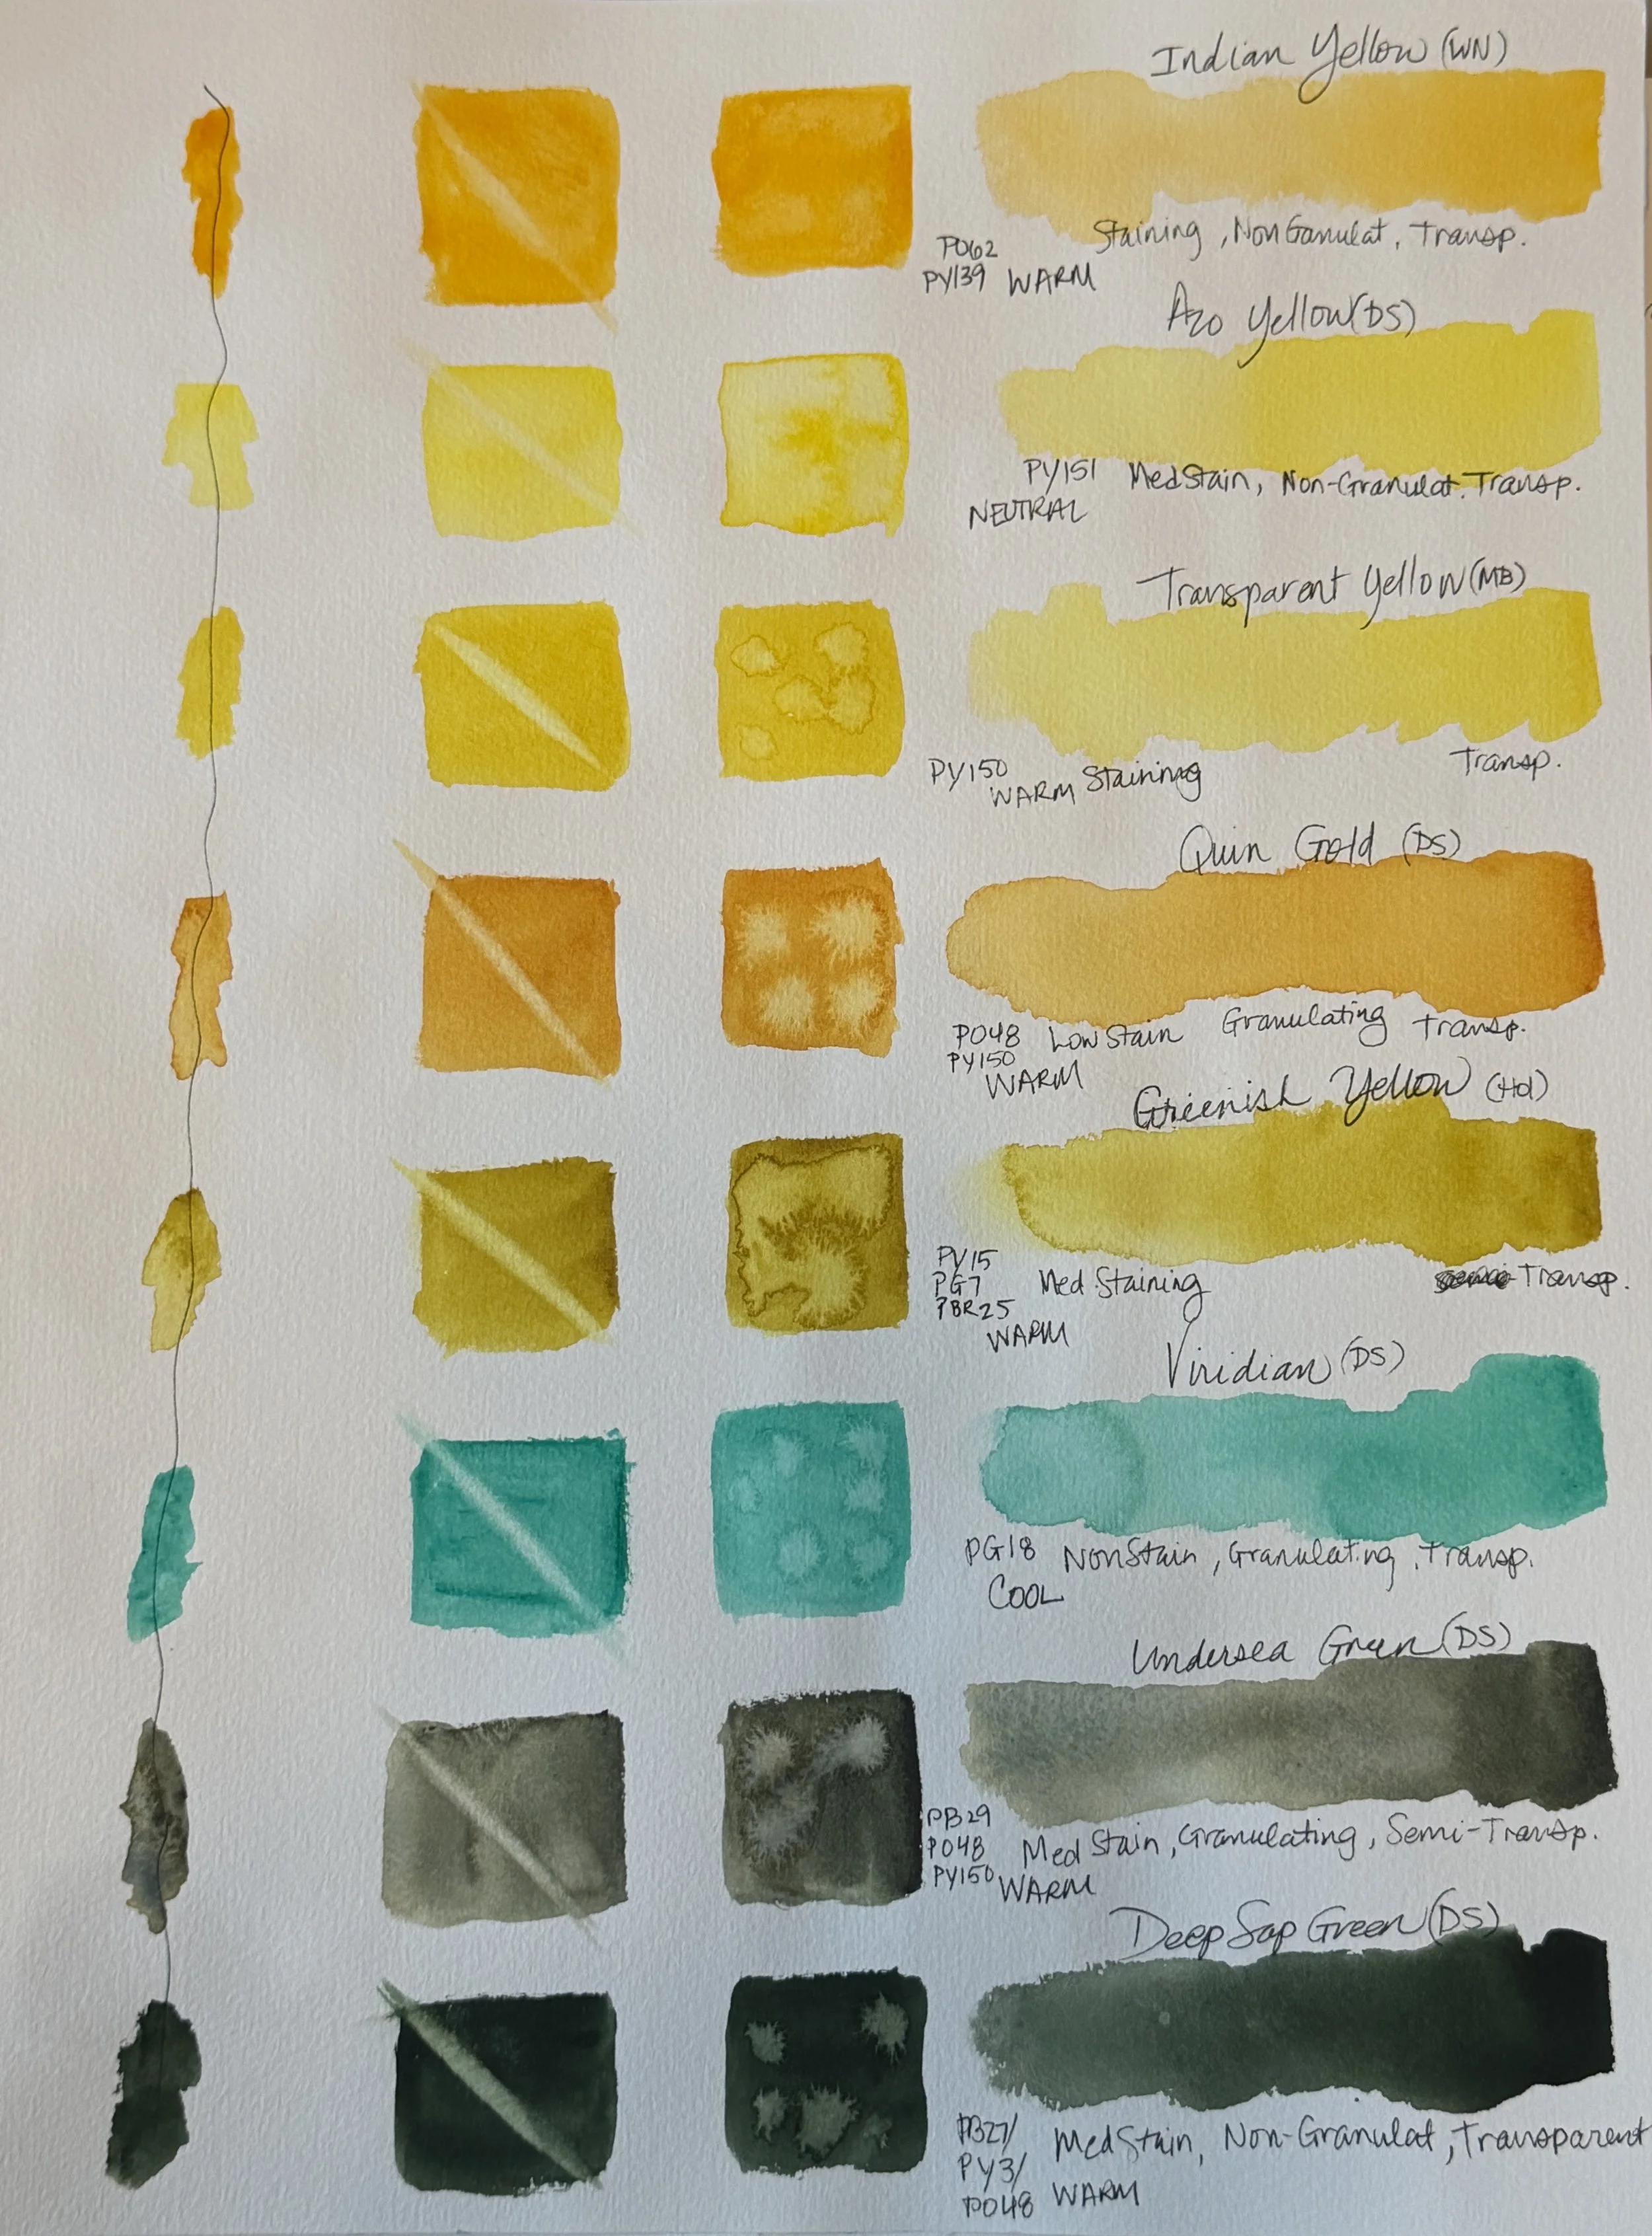 Indian Yellow (WN)
Staining, NonGanulat, Transp.
PO62
PY139 WARM
Azo Yellow (DS)
PY151 Med Stain, Non-Granulat. Transp.
NEUTRAL
Transparent Yellow (MB)
PY150 Transp.
WARM Staining
Quin Gold (DS)
PO48 Low Stain Granulating Transp.
PY150
WARM
Greenish Yellow (Hol)
PY15
PG7 Med. Staining Transp.
PBR25
WARM
Viridian (DS)
PG18 NonStain, Granulating, Transp.
COOL
Undersea Green (DS)
PB29
PO48 Med Stain, Granulating, Semi-Transp.
PY150 WARM
Deep Sap Green (DS)
PB27/ Med Stain, Non-Granulat, Transparent
PY3/
PO48 WARM